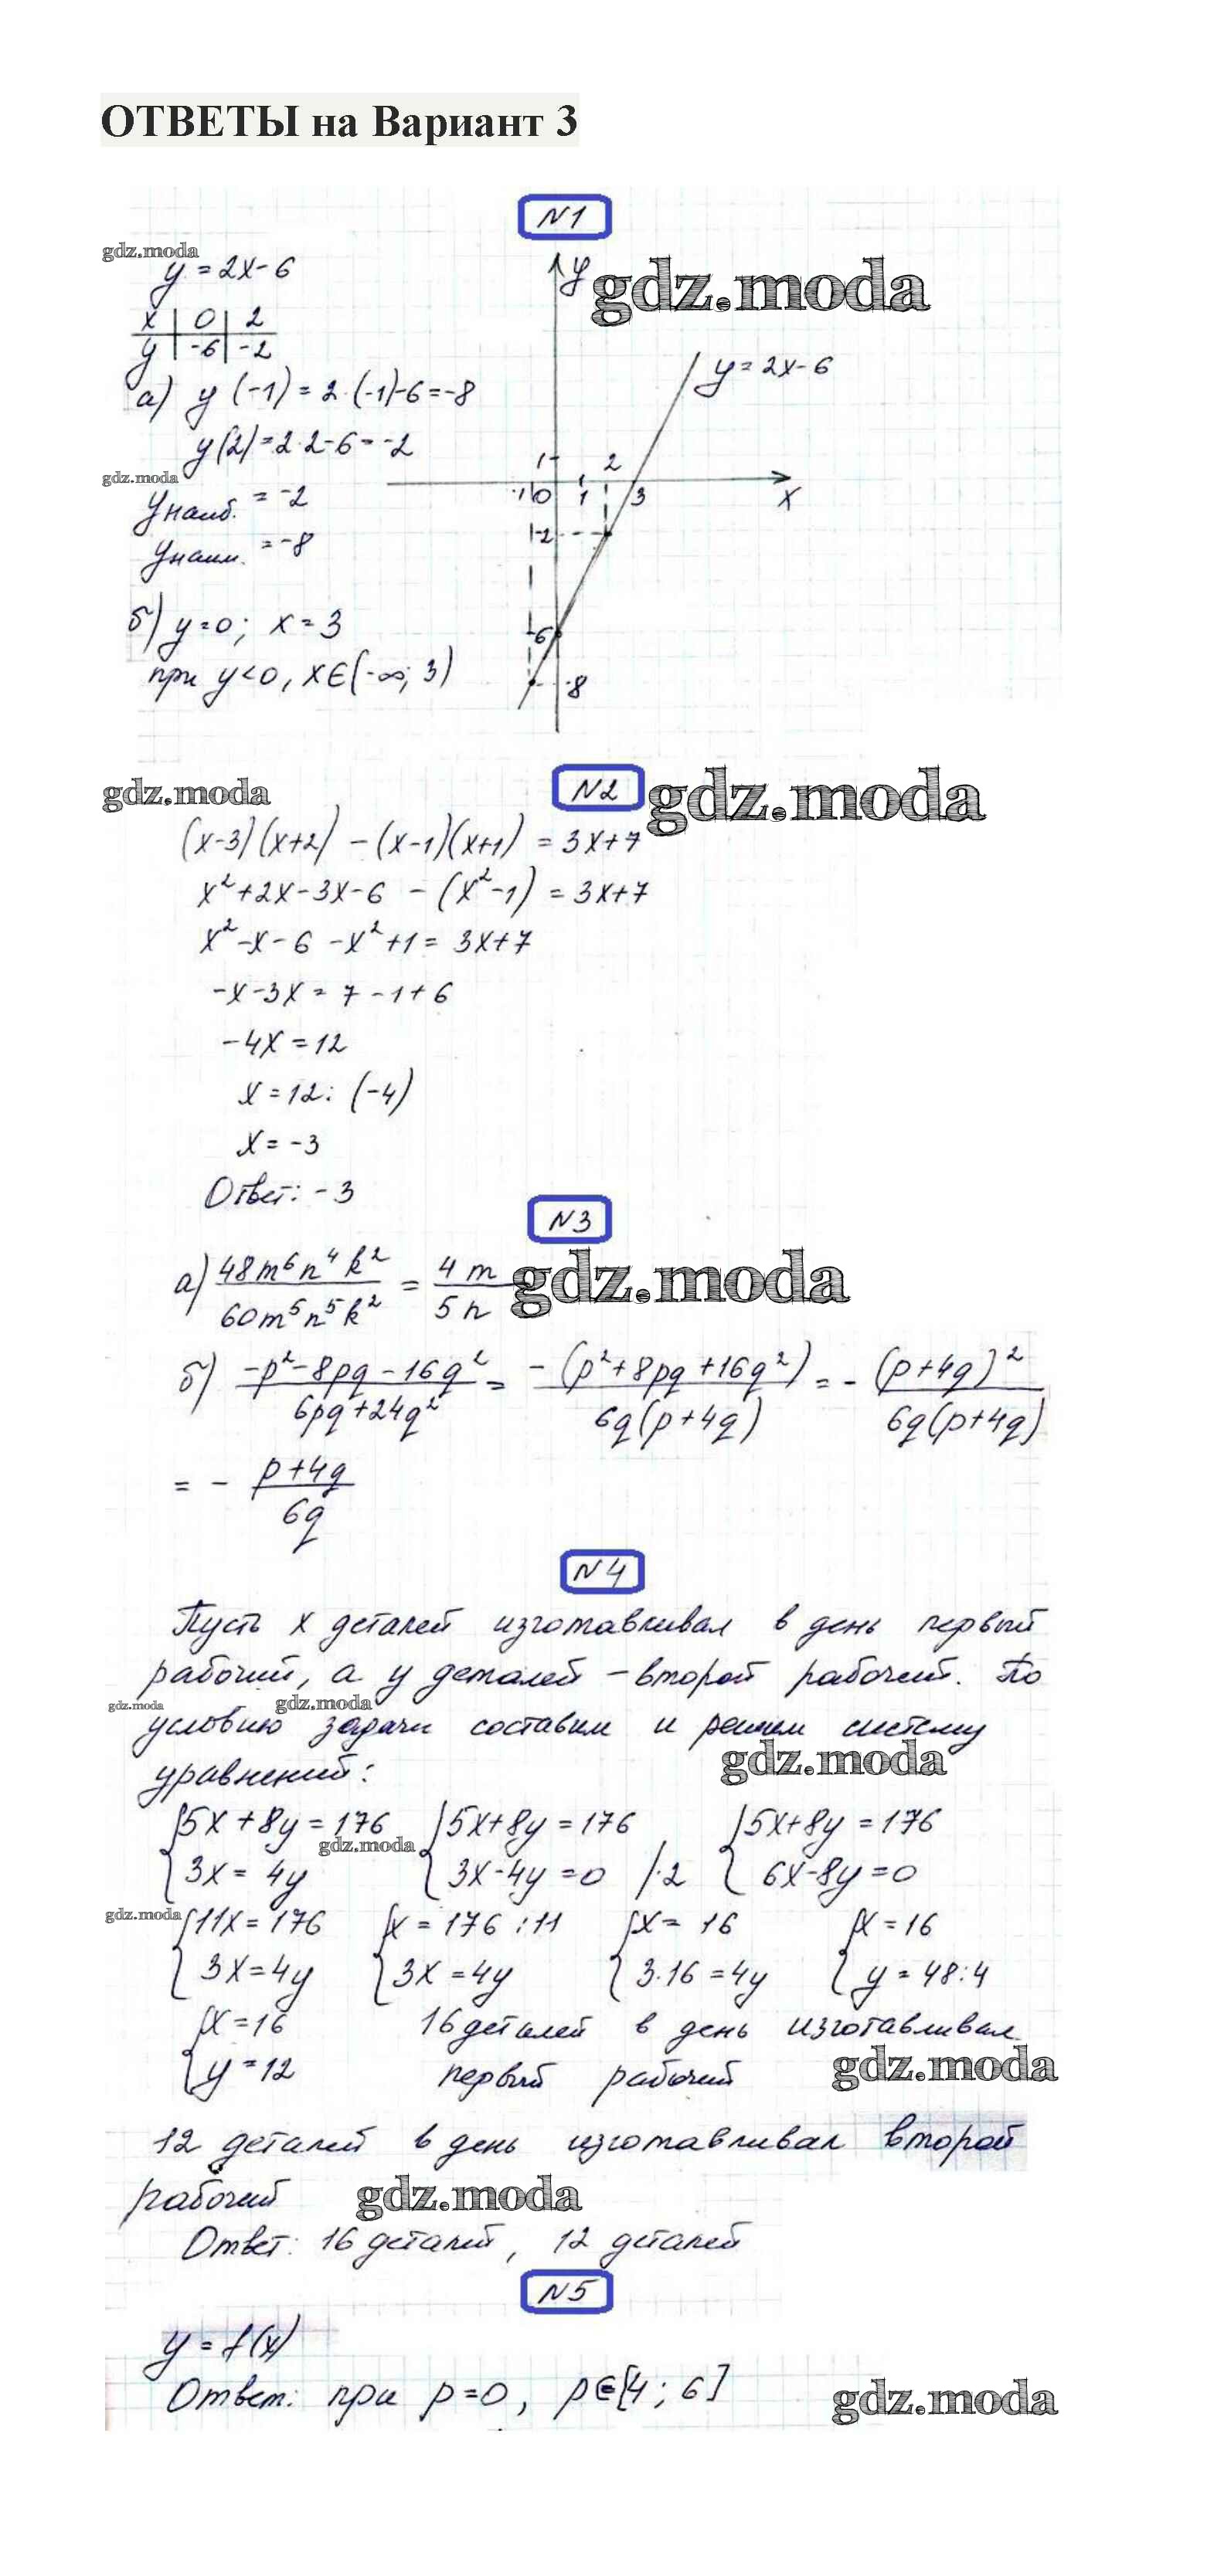 ОТВЕТЫ на Вариант 3
N1
gdz.moda
y = 2x - 6
y
gdz.moda
x | 0 | 2
y | -6 | -2
y = 2x - 6
а) y (-1) = 2 · (-1) - 6 = -8
y(2) = 2 · 2 - 6 = -2
gdz.moda
1
2
-1 0 1 3 x
yнаиб. = -2
-2
yнаим. = -8
б) y = 0; x = 3
-6
при y < 0, x ∈ (-∞; 3)
-8
N2
gdz.moda
gdz.moda
(x-3)(x+2) - (x-1)(x+1) = 3x+7
x² + 2x - 3x - 6 - (x² - 1) = 3x+7
x² - x - 6 - x² + 1 = 3x+7
-x - 3x = 7 - 1 + 6
-4x = 12
x = 12 : (-4)
x = -3
Ответ: -3
N3
а) 48m⁶n⁴k² / 60m⁵n⁵k² = 4m / 5n
gdz.moda
б) -p² - 8pq - 16q² / 6pq + 24q² = -(p² + 8pq + 16q²) / 6q(p+4q) = - (p+4q)² / 6q(p+4q)
= - p+4q / 6q
N4
Пусть x деталей изготавливал в день первый
рабочий, а y деталей - второй рабочий. По
gdz.moda gdz.moda
условию задачи составим и решим систему
gdz.moda
уравнений:
{5x + 8y = 176 {5x + 8y = 176 {5x + 8y = 176
gdz.moda
{3x = 4y {3x - 4y = 0 |·2 {6x - 8y = 0
gdz.moda
{11x = 176 {x = 176 : 11 {x = 16 {x = 16
{3x = 4y {3x = 4y {3·16 = 4y {y = 48:4
{x = 16 16 деталей в день изготавливал
{y = 12 первый рабочий
gdz.moda
12 деталей в день изготавливал второй
рабочий
gdz.moda
Ответ: 16 деталей, 12 деталей
N5
y = f(x)
Ответ: при p = 0, p ∈ [4; 6]
gdz.moda